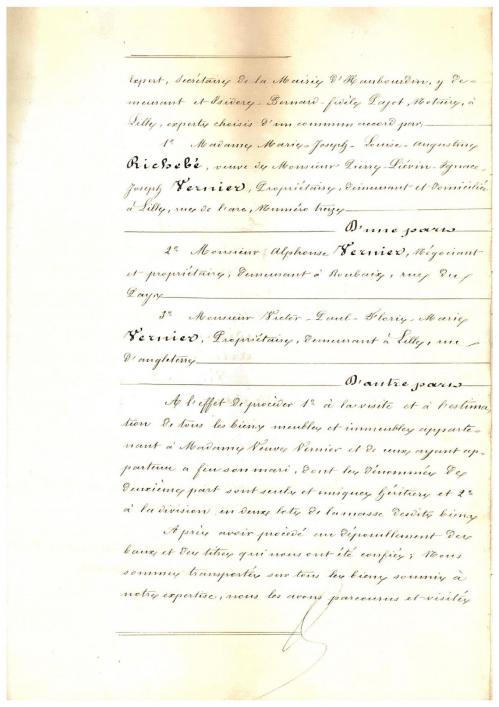 Expert, Secrétaire de la Mairie d'Haubourdin, y de-
meurant et Isidore-Bernard-fidèle Pajot, Notaire, à
Lille, experts choisis d'un commun accord par,
1° Madame Marie-Joseph-Louise-Augustine
Richebé, veuve de Monsieur Pierre-Liévin-Ignace-
Joseph Vernier, Propriétaire, demeurant et domiciliée
à Lille, rue de l'arc, Numéro treize
D'une part
2° Monsieur Alphonse Vernier, Négociant
et propriétaire, demeurant à Roubaix, rue du
Pays
3° Monsieur Victor-Paul-Floris-Marie
Vernier, Propriétaire, demeurant à Lille, rue
d'angleterre
D'autre part
A l'effet de procéder 1° à la visite et à l'estima
tion de tous les biens meubles et immeubles apparte-
nant à Madame Veuve Vernier et de ceux ayant ap-
partenu a feu son mari, dont les dénommés de
deuxième part sont seuls et uniques héritiers et 2°
à la division en deux lots de la masse desdits biens
Après avoir procédé au dépouillement des
baux et des titres qui nous ont été confiés; Nous
sommes transportés sur tous les biens soumis à
notre expertise, nous les avons parcourus et visités